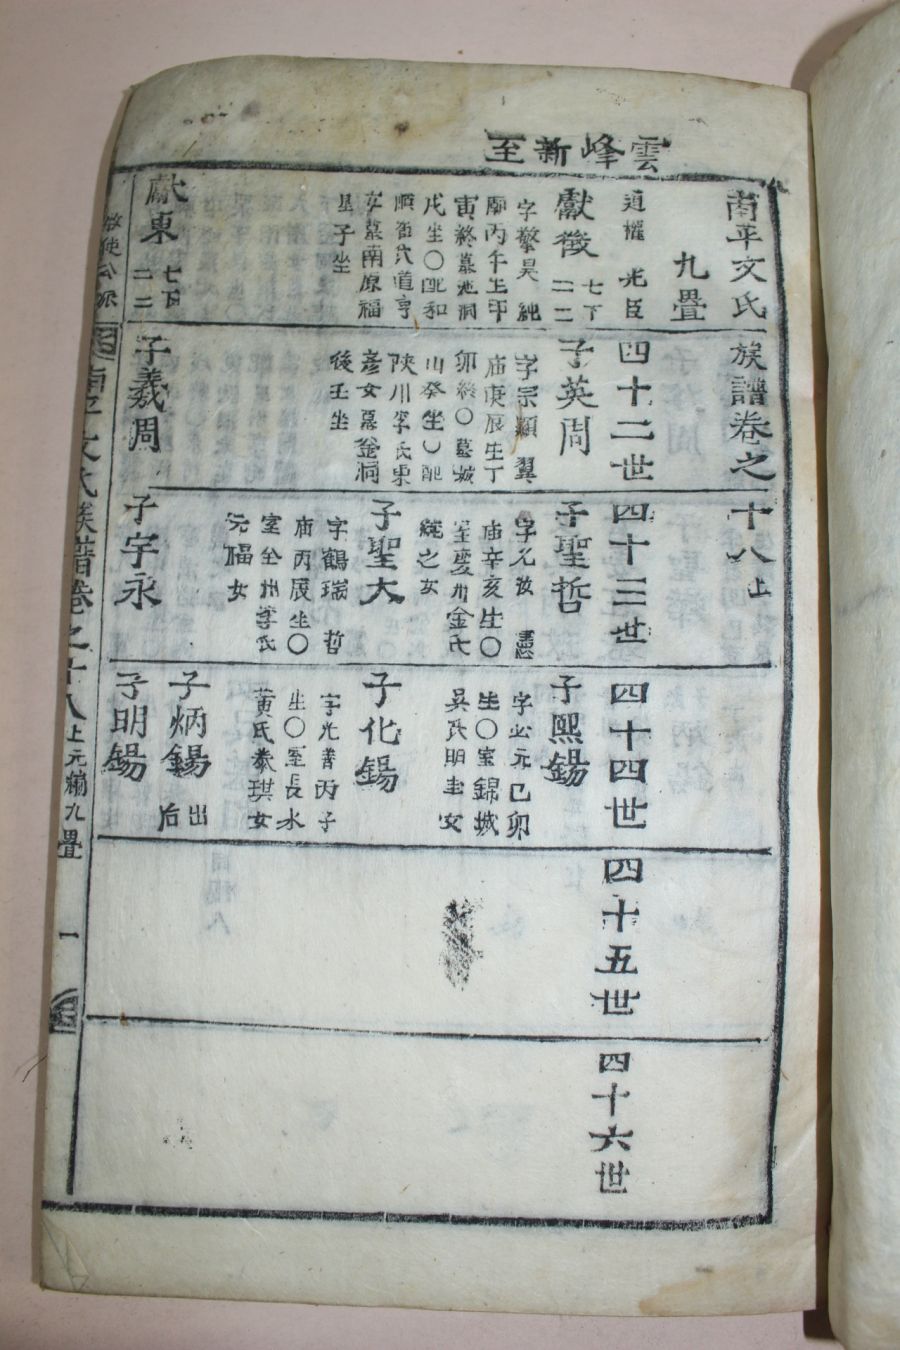 雲峰新至
南平文氏族譜卷之十八上
九疊
道權 光臣
四十二世
四十三世
四十四世
四十五世
四十六世
獻徵 七下 二二
字敬昊 純
廟丙午生甲
寅終墓池洞
戌坐〇配和
順崔氏道亨
女墓南原福
星子坐
子英周
字宗顯 翼
庙庚辰生丁
卯終〇墓城
山癸坐〇配
陜川李氏東
彥女墓釜洞
後壬坐
子聖哲
字允汝 憲
庙辛亥生〇
室慶州金氏
統之女
子熙錫
字必元己卯
生〇室錦城
吳氏明圭女
子聖大
字鶴瑞 哲
庙丙辰生〇
室全州李氏
元福女
子化錫
字光善丙子
生〇室長水
黃氏泰琪女
子炳錫 出
后
獻東 七下 二二
子羲周
子宇永
子明錫
南平文氏族譜卷之十八上元編九疊 一